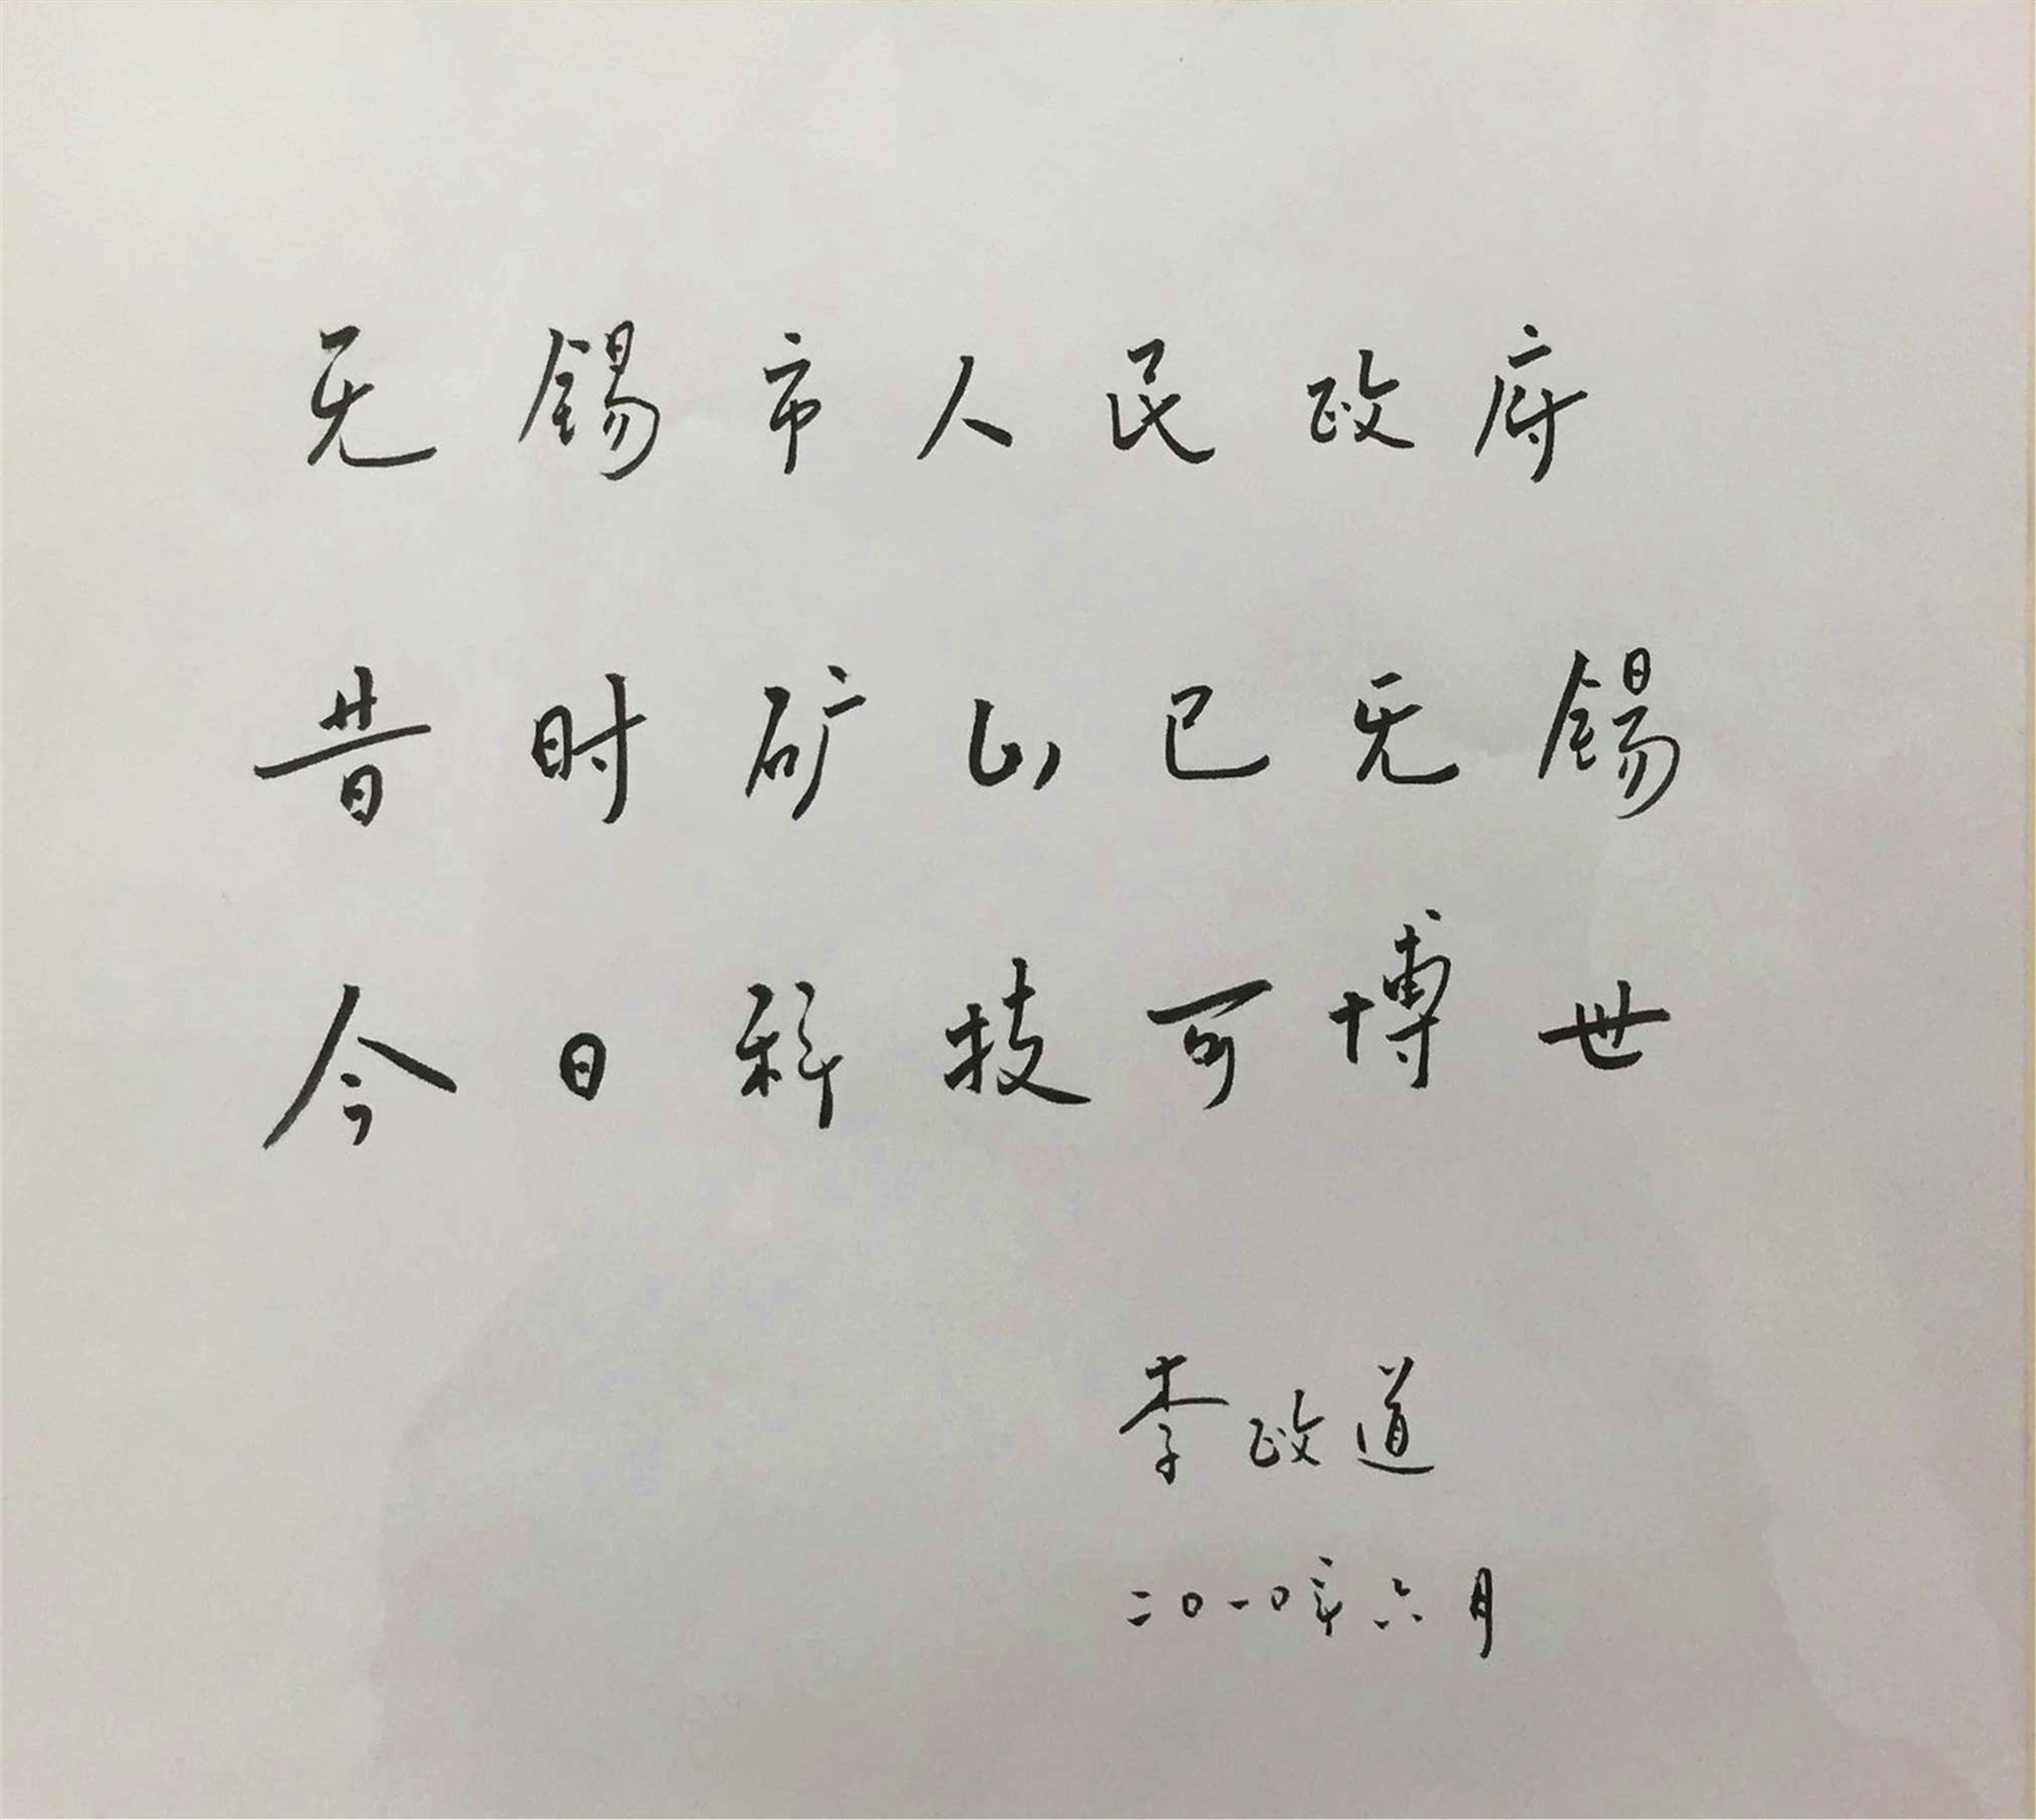 无锡市人民政府
昔时矿山已无锡
今日科技可博世
李政道
二〇一〇年六月